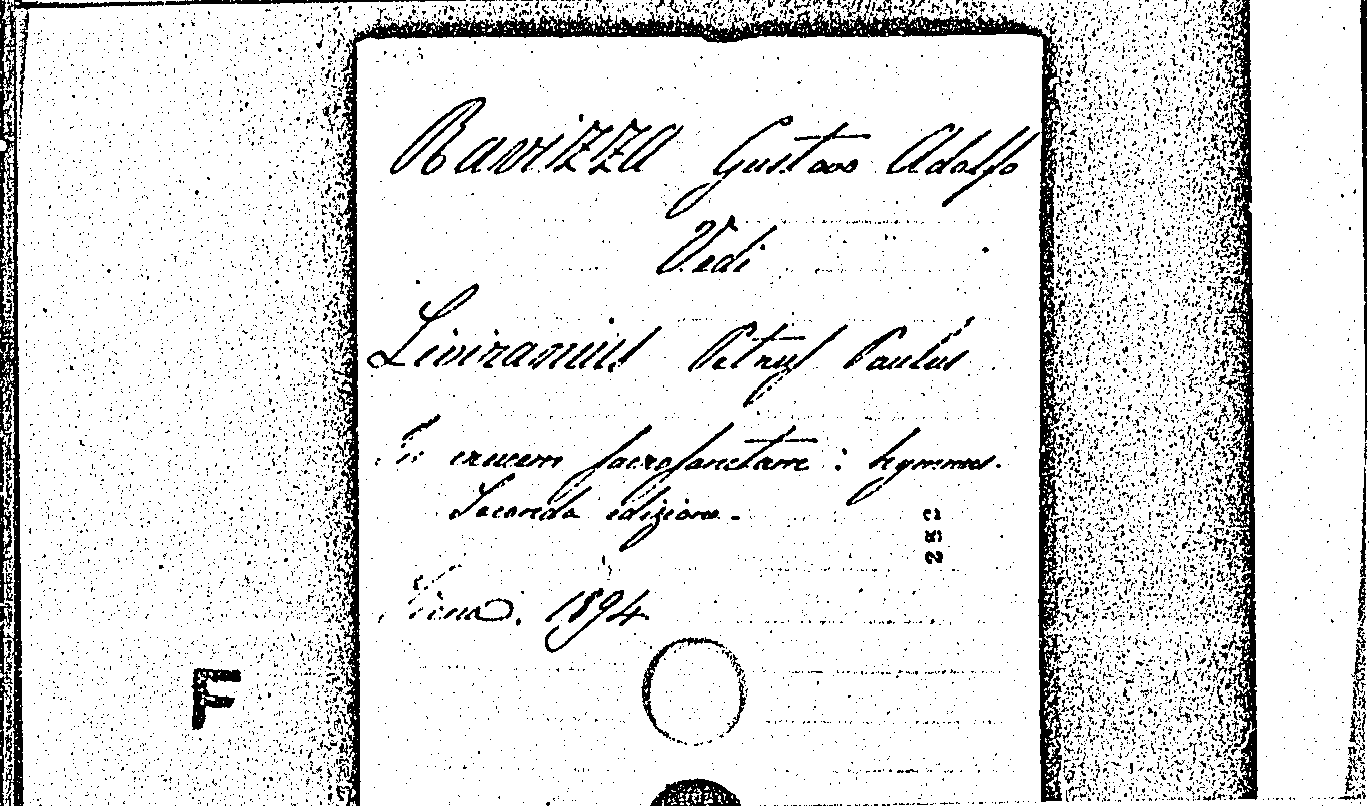 Ravizza Gustavo Adolfo
Vedi
Petrus Paulus
In crucem sacrosanctam : hymnus.
Seconda edizione.
Siena. 1894
252
F